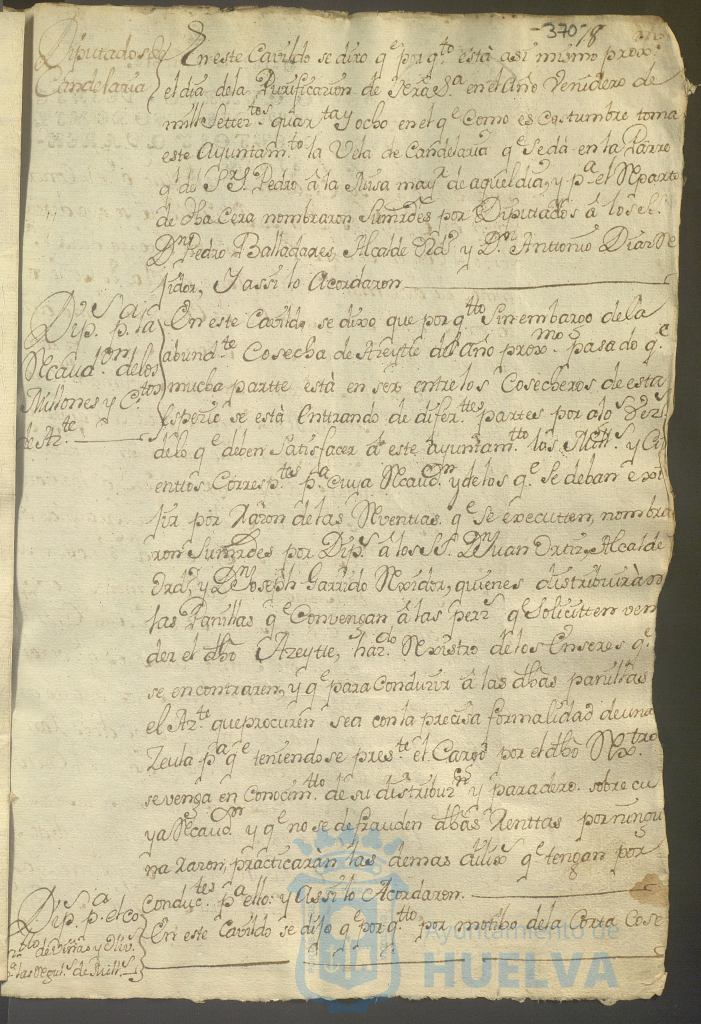 -370/8
Diputados de
Candelaria
En este Cavildo se dixo qe por qto està asi mismo proxo
el dia dela Purificazion de Nra Sa en el Año Venidero de
mill Settetos quarta y ocho en el qe como es costumbre toma
este Ayuntamto la Vela de Candelaria qe se dá en la Parro
ql de Sr Sn Pedro, à la Misa mayr de aquel dia, y pa el Reparto
de dha Cera nombraron sus mrdes por Diputados à los SS.
Dn Pedro Balladares, Alcalde Ordo y Dn Antonio Diaz Re
jidor, Y assi lo Acordaron
Dips pa la
Recaudon delos
Millones y Ctos
de Azte
En este Cavildo se dixo que por qtto sin embargo dela
abundte Cosecha de Azeytte del Año proxmo pasado qe
mucha partte està en ser entre los Cosecheros de esta
espezie se està entrando de diferttes partes por
delo qe deben satisfacer à este Ayuntamtto los Mills y Ci
enttos Correspttes pa cuya Recaudon y de los qe se deban exi
jir por razon de las Reventtas qe se executten, nombra
ron sus mrdes por Dips à los SS. Dn Juan Ortiz, Alcalde
Ordo y Dn Joseph Garrido Rexidor, quienes distribuiràn
las Panillas qe Convengan à las pers qe solicitten ven
der el dho Azeytte, haran Rexistro de los Enseres qe
se encontraren, y qe para Conduzir à las dhas panillas
el Azte que procuren sea con la precisa formalidad de una
Zedula pa qe teniendose preste el Cargo por el dho Rextro
se venga en conocimtto de su distribuzon y paradero sobre cu
ya Recaudon y qe no se defrauden dhas Renttas por ningu
na razon, practicaràn las demas dilixs qe tengan por
conducttes pa ello: y Assi lo Acordaron.
Dips pa el co
tto de Viñas y Oliv.
En este Cavildo se dijo qe por qtto por motibo dela Corta Cose
Ayuntamiento de
HUELVA